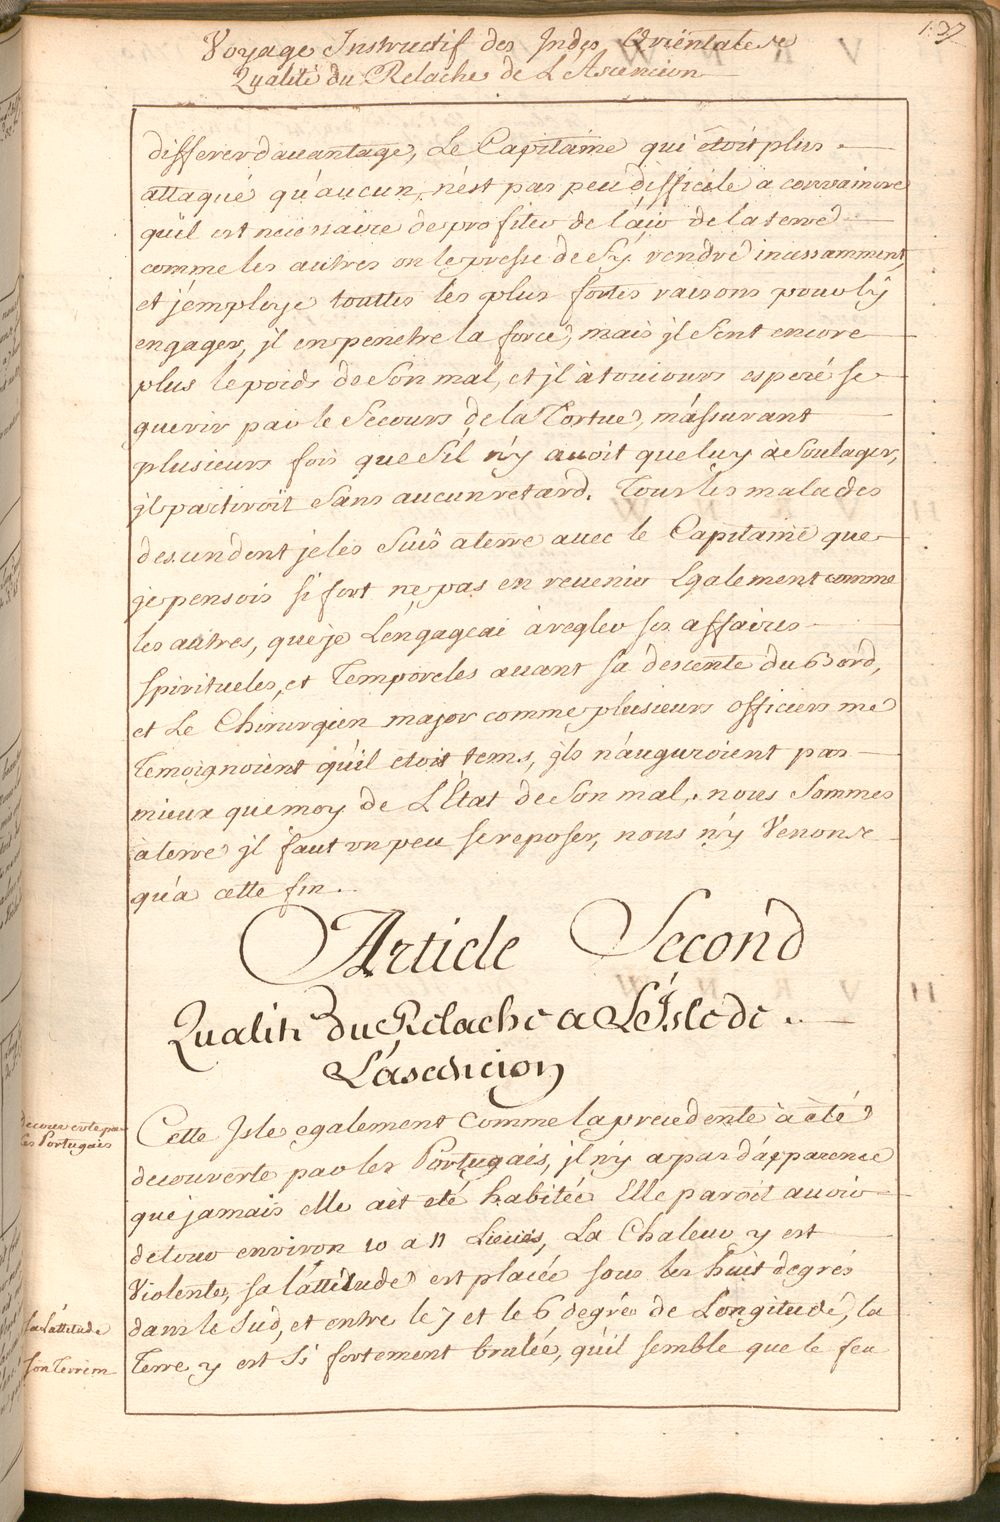 137
Voyage Instructif des Indes Orientales
Qualité du Relache de L'Ascencion
differer davantage, Le Capitaine qui étoit plus
attaqué qu'aucun, n'est pas peu difficile a convaincre
qu'il est necessaire de profiter de l'air de la terre
comme les autres on le presse de s'y rendre incessamment,
et j'employe touttes les plus fortes raisons pour l'y
engager, jl en penetre la force, mais jl sent encore
plus le poids de son mal, et jl à toujours esperé se
guerir par le Secours de la Tortue, m'assurant
plusieurs fois que s'il n'y avoit que luy à Soulager,
jl partiroit Sans aucun retard. Tous les malades
descendent je les Suis a terre avec le Capitaine que
je pensois si fort ne pas en revenir Egalement comme
les autres, que je L'engageai à regler ses affaires
spirituelles, et Temporeles avant sa descente du Bord,
et Le Chirurgien major comme plusieurs officiers me
Temoignoient qu'il etoit tems, jls n'auguroient pas
mieux que moy de L'Etat de Son mal, nous Sommes
a terre jl faut un peu se reposer, nous n'y Venons
qu'a cette fin.
Article Second
Qualité du Relache a L'Isle de
L'ascencion
decouverte par
les Portugais
Cette Isle egalement comme la precedente à été
decouverte par les Portugais, jl n'y a pas d'apparence
que jamais elle ait eté habitée Elle paroit avoir
de tour environ 10 a 11 Lieues, La Chaleur y est
Violente, sa lattitude est placée sous les huit degrés
sa Lattitude
dans le Sud, et entre le 7 et le 6 degrés de Longitude, la
son Terrein
Terre y est si fortement brulée, qu'il semble que le feu